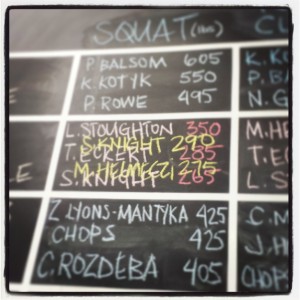 SQUAT (lbs) C
P. BALSOM 605 K. K
K. KOTYK 550 P. BA
P. ROWE 495 N. G
L. STOUGHTON 350 M. HE
S. KNIGHT 290
T. ECKERT 285 T. E
M. HELMECZI 275
S. KNIGHT 265 L. S
E
Z LYONS-MANTYKA 425 C. M
CHOPS 425 J. H
C. ROZDEBA 405 CHOPS